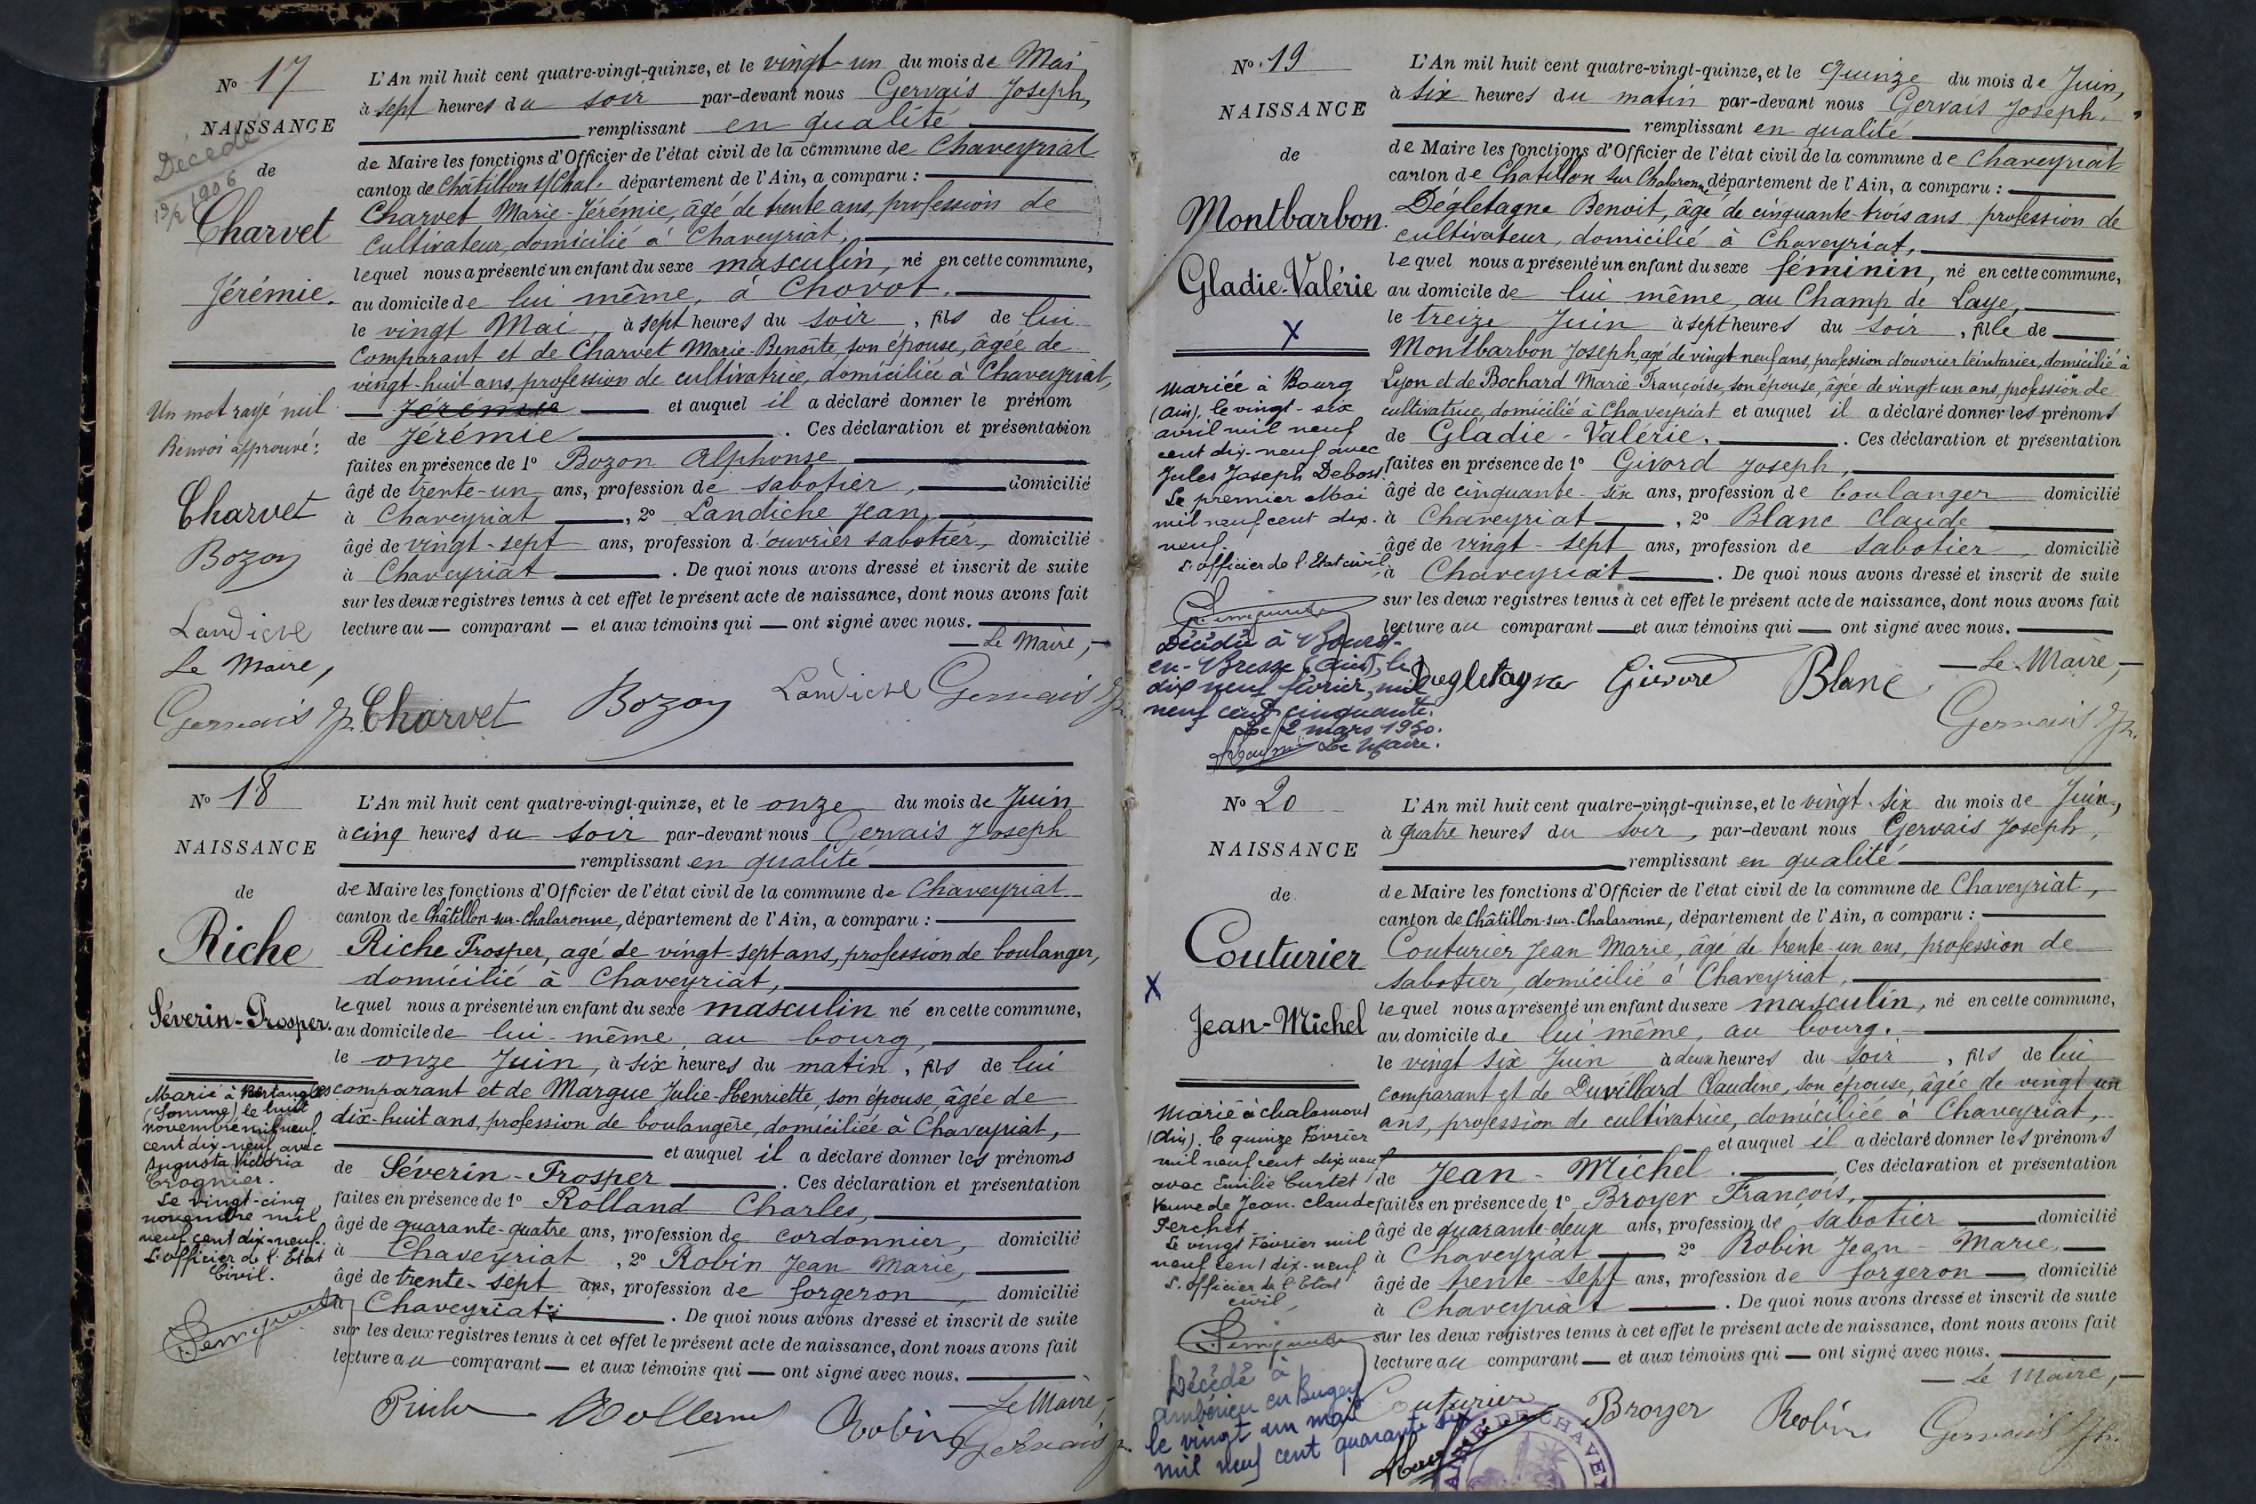 Nº 17
NAISSANCE
de
Décédé
19/2 1906
Charvet
Jérémie.
Un mot rayé nul
Renvoi approuvé:
Charvet
Bozon
Landiche
Le Maire,
Gervais Jh.
L'An mil huit cent quatre-vingt-quinze, et le vingt-un du mois de Mai
à sept heures du soir par-devant nous Gervais Joseph,
remplissant en qualité
de Maire les fonctions d'Officier de l'état civil de la commune de Chaveyriat
canton de Châtillon s/Chal. département de l'Ain, a comparu :
Charvet Marie-Jérémie, âgé de trente ans, profession de
cultivateur, domicilié à Chaveyriat,
lequel nous a présenté un enfant du sexe masculin, né en cette commune,
au domicile de lui même, à Chovot.
le vingt Mai, à sept heures du soir, fils de lui
comparant et de Charvet Marie-Benoîte, son épouse, âgée de
vingt-huit ans, profession de cultivatrice, domiciliée à Chaveyriat,
Jérémie et auquel il a déclaré donner le prénom
de Jérémie. Ces déclaration et présentation
faites en présence de 1º Bozon Alphonse
âgé de trente-un ans, profession de sabotier, domicilié
à Chaveyriat, 2º Landiche Jean,
âgé de vingt-sept ans, profession d'ouvrier sabotier, domicilié
à Chaveyriat. De quoi nous avons dressé et inscrit de suite
sur les deux registres tenus à cet effet le présent acte de naissance, dont nous avons fait
lecture au — comparant — et aux témoins qui — ont signé avec nous.
Le Maire,
Charvet Bozon Landiche Gervais Jh.
Nº 18
NAISSANCE
de
Riche
Séverin-Prosper.
Marié à Bertangles
(Somme) le huit
novembre mil neuf
cent dix-neuf avec
Augusta Victoria
Crognier.
Le vingt-cinq
novembre mil
neuf cent dix-neuf.
L'officier de l'Etat
Civil.
L'An mil huit cent quatre-vingt-quinze, et le onze du mois de Juin
à cinq heures du soir par-devant nous Gervais Joseph
remplissant en qualité
de Maire les fonctions d'Officier de l'état civil de la commune de Chaveyriat
canton de Châtillon-sur-Chalaronne, département de l'Ain, a comparu :
Riche Prosper, agé de vingt-sept ans, profession de boulanger,
domicilié à Chaveyriat,
lequel nous a présenté un enfant du sexe masculin né en cette commune,
au domicile de lui-même, au bourg,
le onze Juin, à six heures du matin, fils de lui
comparant et de Margue Julie-Henriette, son épouse, âgée de
dix-huit ans, profession de boulangère, domiciliée à Chaveyriat,
et auquel il a déclaré donner les prénoms
de Séverin-Prosper. Ces déclaration et présentation
faites en présence de 1º Rolland Charles,
âgé de quarante-quatre ans, profession de cordonnier, domicilié
à Chaveyriat, 2º Robin Jean Marie,
âgé de trente-sept ans, profession de forgeron, domicilié
à Chaveyriat. De quoi nous avons dressé et inscrit de suite
sur les deux registres tenus à cet effet le présent acte de naissance, dont nous avons fait
lecture au comparant — et aux témoins qui — ont signé avec nous.
Le Maire,
Riche Rolland Robin Gervais Jh.
Nº 19
NAISSANCE
de
Montbarbon
Gladie-Valérie
X
Mariée à Bourg
(Ain), le vingt-six
avril mil neuf
cent dix-neuf avec
Jules Joseph Debost.
Le premier Mai
mil neuf cent dix-
neuf
L'officier de l'Etat civil,
Décédée à Bourg-
en-Bresse (Ain), le
dix neuf février, mil
neuf cent cinquante.
Le 2 mars 1950.
Le Maire.
L'An mil huit cent quatre-vingt-quinze, et le quinze du mois de Juin,
à six heures du matin par-devant nous Gervais Joseph,
remplissant en qualité
de Maire les fonctions d'Officier de l'état civil de la commune de Chaveyriat
canton de Chatillon sur Chalaronne département de l'Ain, a comparu :
Dégletagne Benoit, âgé de cinquante-trois ans profession de
cultivateur, domicilié à Chaveyriat,
lequel nous a présenté un enfant du sexe féminin, né en cette commune,
au domicile de lui même, au Champ de Laye,
le treize Juin à sept heures du soir, fille de
Montbarbon Joseph, agé de vingt-neuf ans, profession d'ouvrier teinturier, domicilié à
Lyon et de Bochard Marie-Françoise, son épouse, âgée de vingt-un ans, profession de
cultivatrice, domicilié à Chaveyriat et auquel il a déclaré donner les prénoms
de Gladie-Valérie. Ces déclaration et présentation
faites en présence de 1º Givord Joseph,
âgé de cinquante-six ans, profession de boulanger domicilié
à Chaveyriat, 2º Blanc Claude
âgé de vingt-sept ans, profession de sabotier domicilié
à Chaveyriat. De quoi nous avons dressé et inscrit de suite
sur les deux registres tenus à cet effet le présent acte de naissance, dont nous avons fait
lecture au comparant — et aux témoins qui — ont signé avec nous.
Le Maire,
Degletagne Givord Blanc
Gervais Jh.
Nº 20
NAISSANCE
de
Couturier
X
Jean-Michel
Marié à Chalamont
(Ain). le quinze Février
mil neuf cent dix neuf
avec Emilie Curtet
Veuve de Jean-Claude
Perchet
Le vingt Février mil
neuf cent dix-neuf
L'officier de l'Etat
civil,
Décédé à
Ambérieu en Bugey
le vingt un mai
mil neuf cent quarante six
L'An mil huit cent quatre-vingt-quinze, et le vingt-six du mois de Juin,
à quatre heures du soir, par-devant nous Gervais Joseph,
remplissant en qualité
de Maire les fonctions d'Officier de l'état civil de la commune de Chaveyriat,
canton de Châtillon-sur-Chalaronne, département de l'Ain, a comparu :
Couturier Jean Marie, âgé de trente-un ans, profession de
sabotier, domicilié à Chaveyriat,
lequel nous a présenté un enfant du sexe masculin, né en cette commune,
au domicile de lui même, au bourg.
le vingt six Juin à deux heures du soir, fils de lui
comparant et de Duvillard Claudine, son épouse, âgée de vingt un
ans, profession de cultivatrice, domiciliée à Chaveyriat,
et auquel il a déclaré donner les prénoms
de Jean-Michel. Ces déclaration et présentation
faites en présence de 1º Broyer François,
âgé de quarante-deux ans, profession de sabotier domicilié
à Chaveyriat 2º Robin Jean-Marie
âgé de trente-sept ans, profession de forgeron domicilié
à Chaveyriat. De quoi nous avons dressé et inscrit de suite
sur les deux registres tenus à cet effet le présent acte de naissance, dont nous avons fait
lecture au comparant — et aux témoins qui — ont signé avec nous.
Le Maire,
Couturier Broyer Robin Gervais Jh.
MAIRIE DE CHAVEY